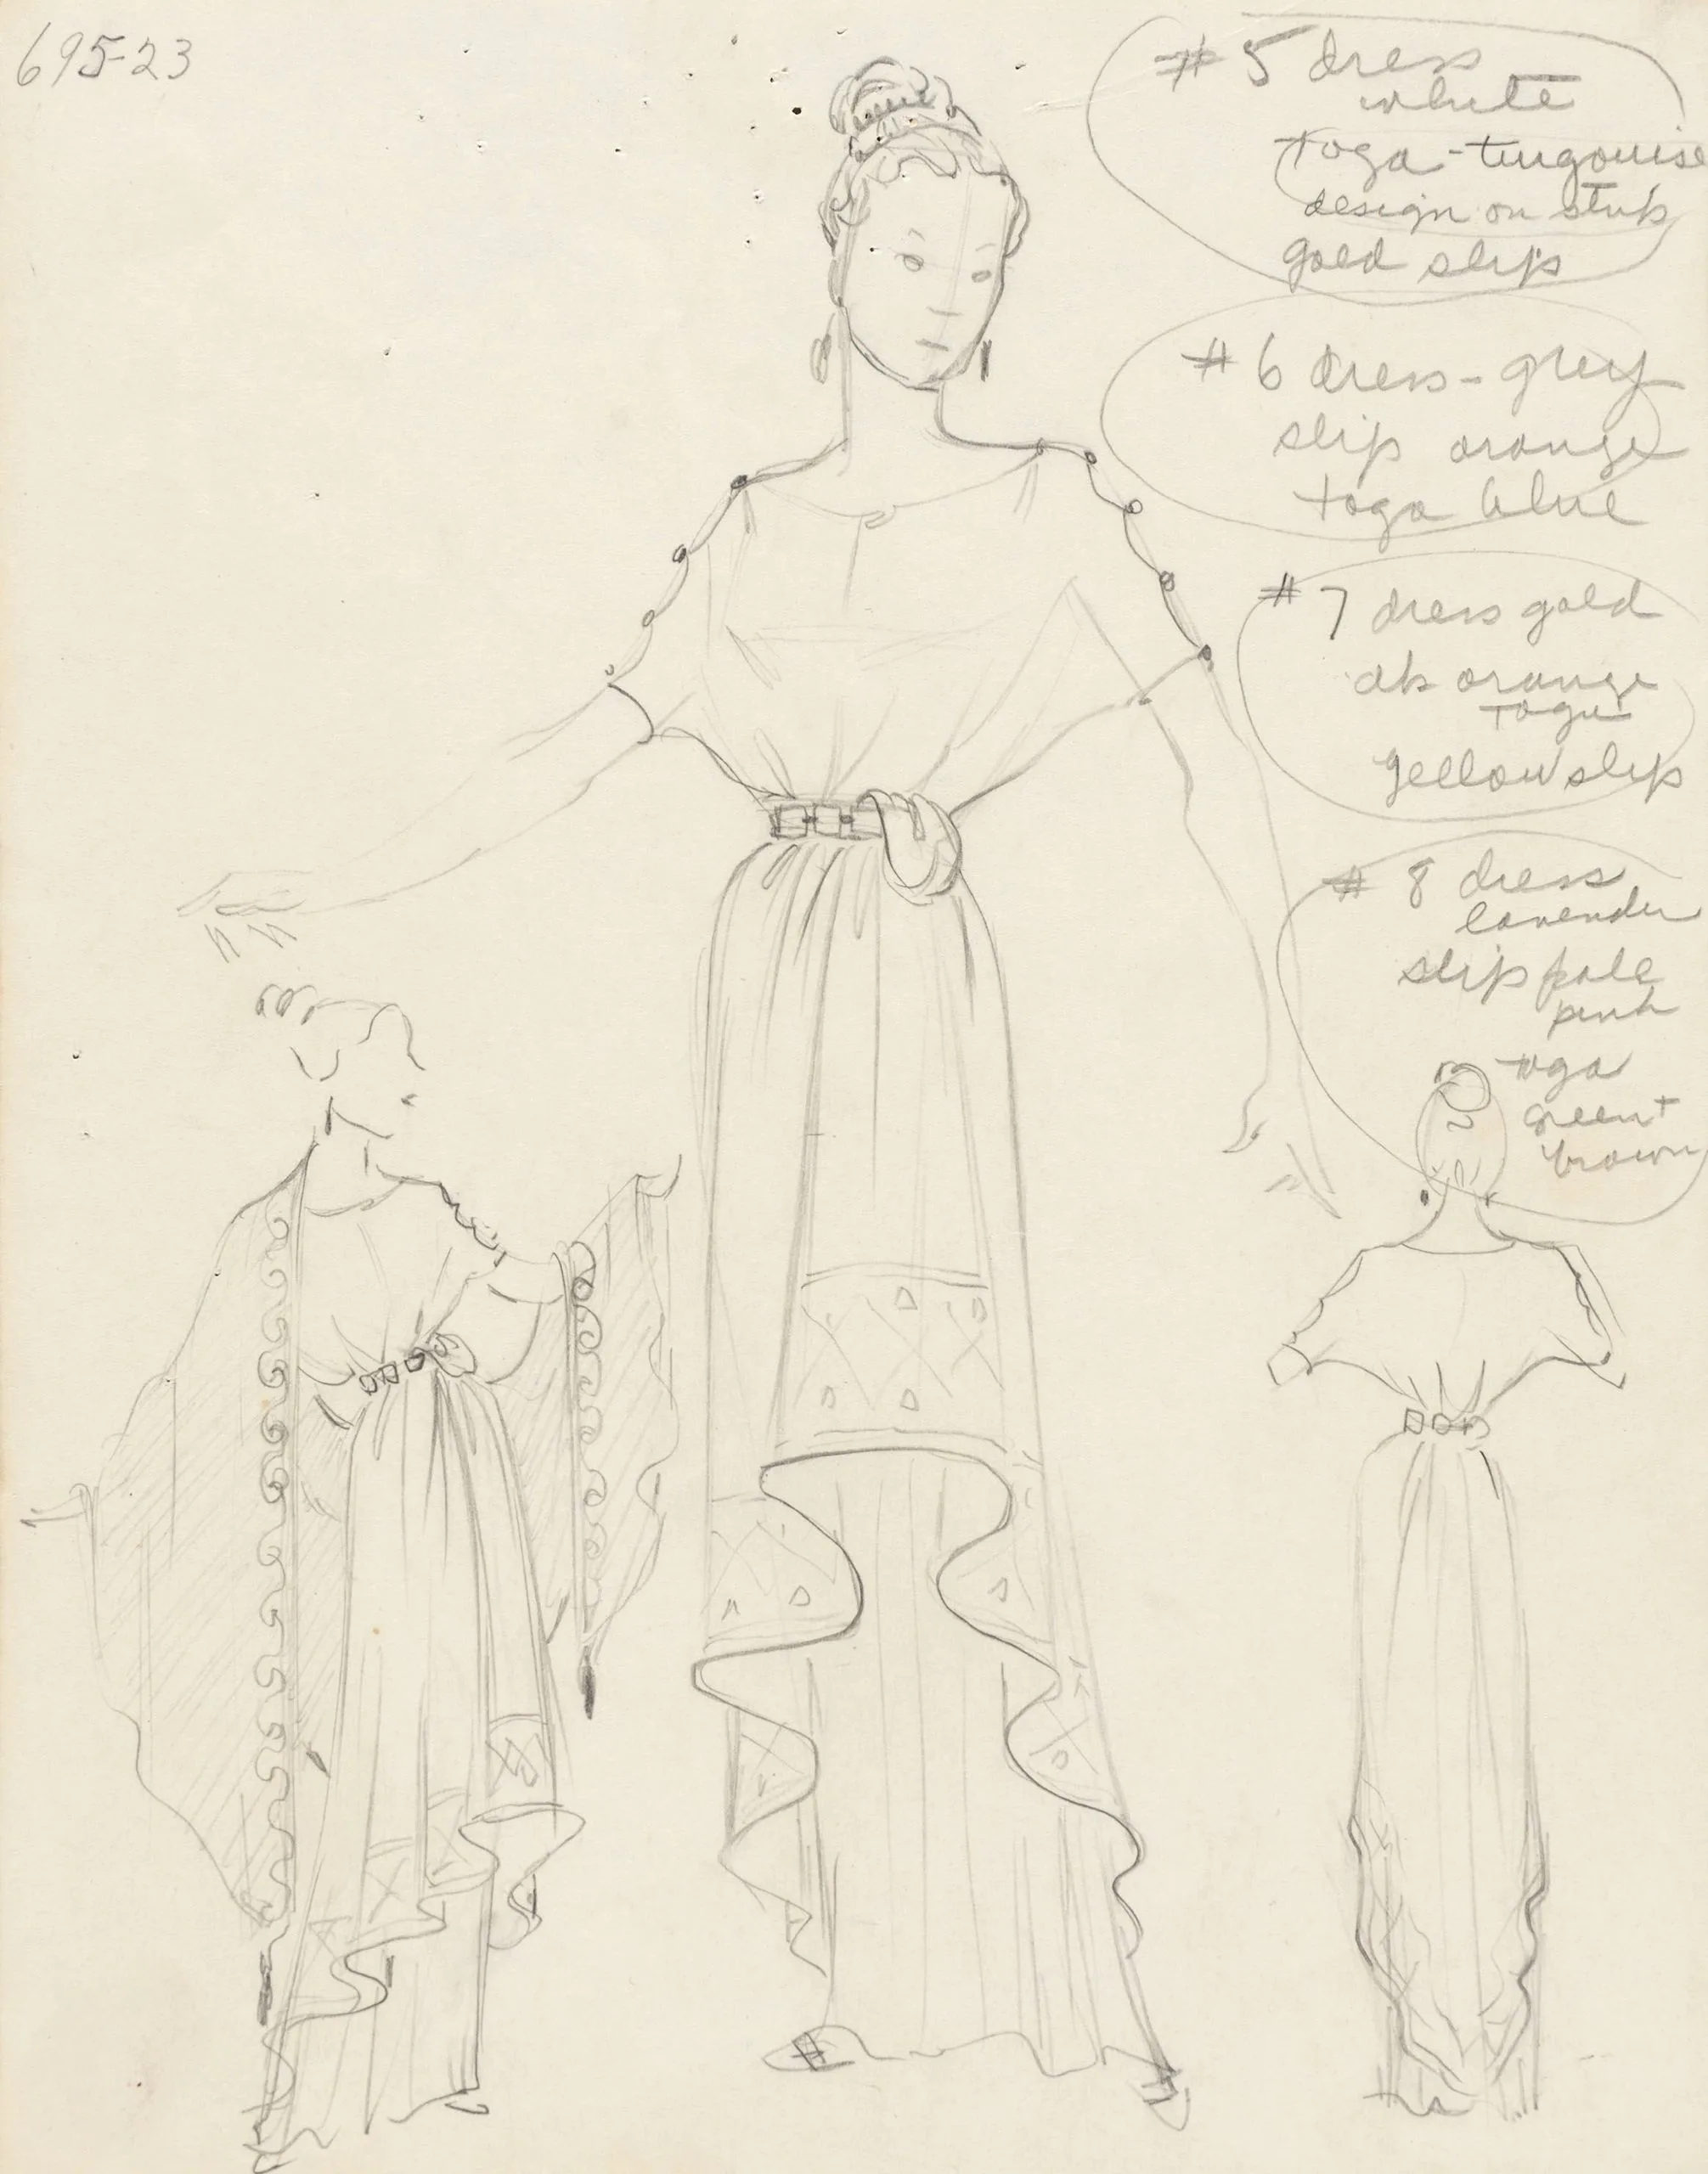 695-23
# 5 dress
white
toga - turqouise
design on
gold slip
# 6 dress - grey
slip orange
toga blue
# 7 dress gold
dk orange
toga
yellow slip
# 8 dress
lavender
slip pale
pink
toga
green +
brown